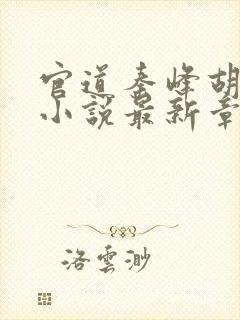 官道秦峰胡
小说最新章
洛雲渺